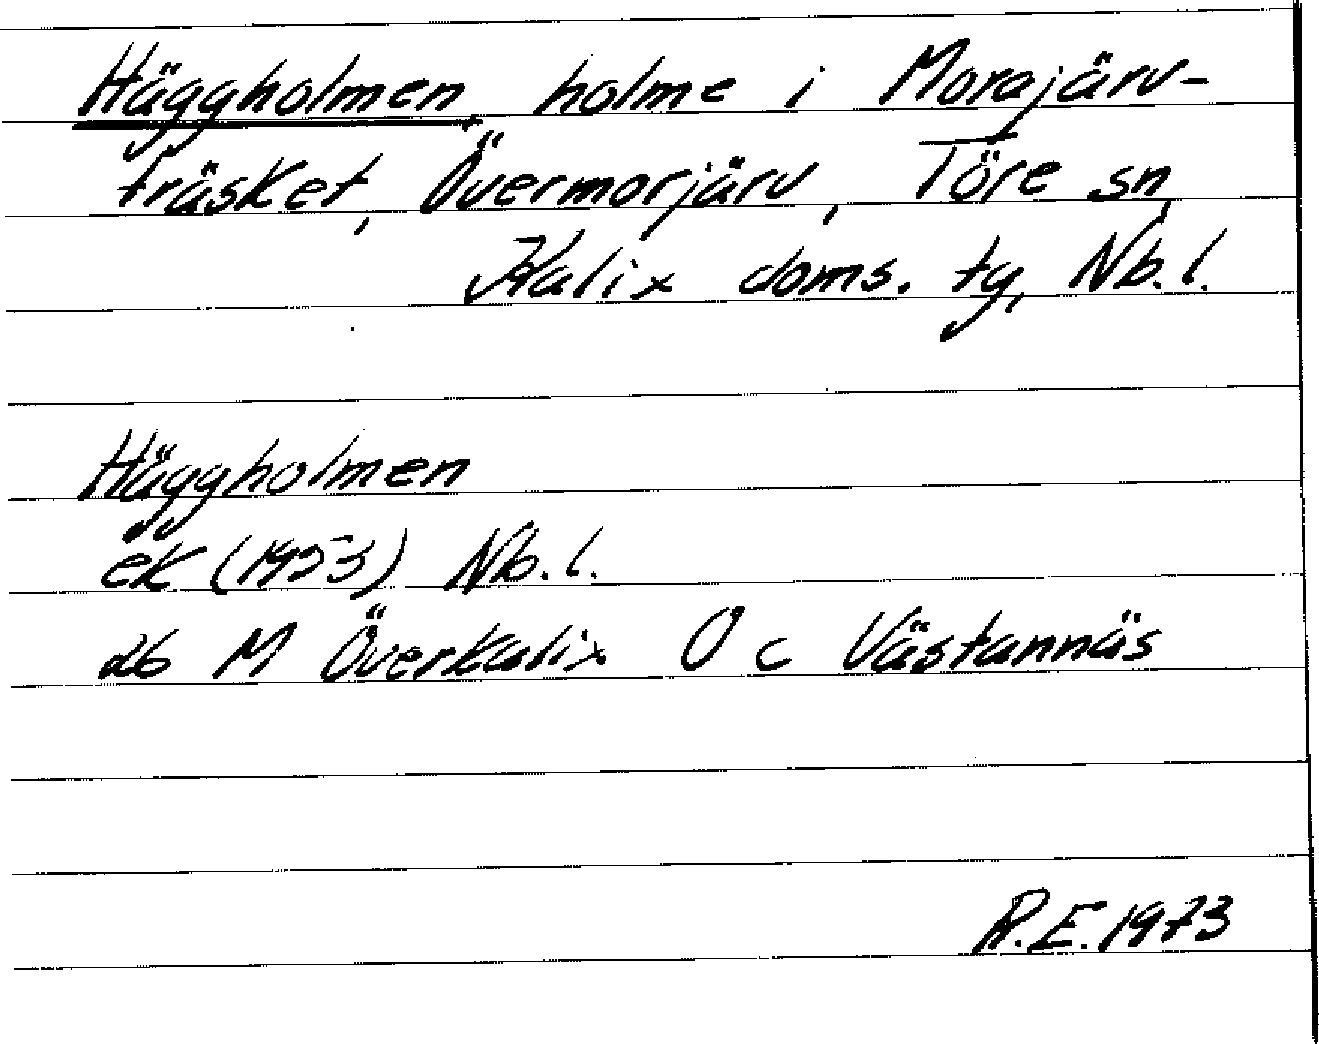 Häggholmen, holme i Morajärv-
träsket, Övermorjärv, Töre sn,
Kalix doms. tg, Nb. l.
Häggholmen
ek (1953) Nb. l.
26 M Överkalix Ö c Västannäs
R.E. 1973